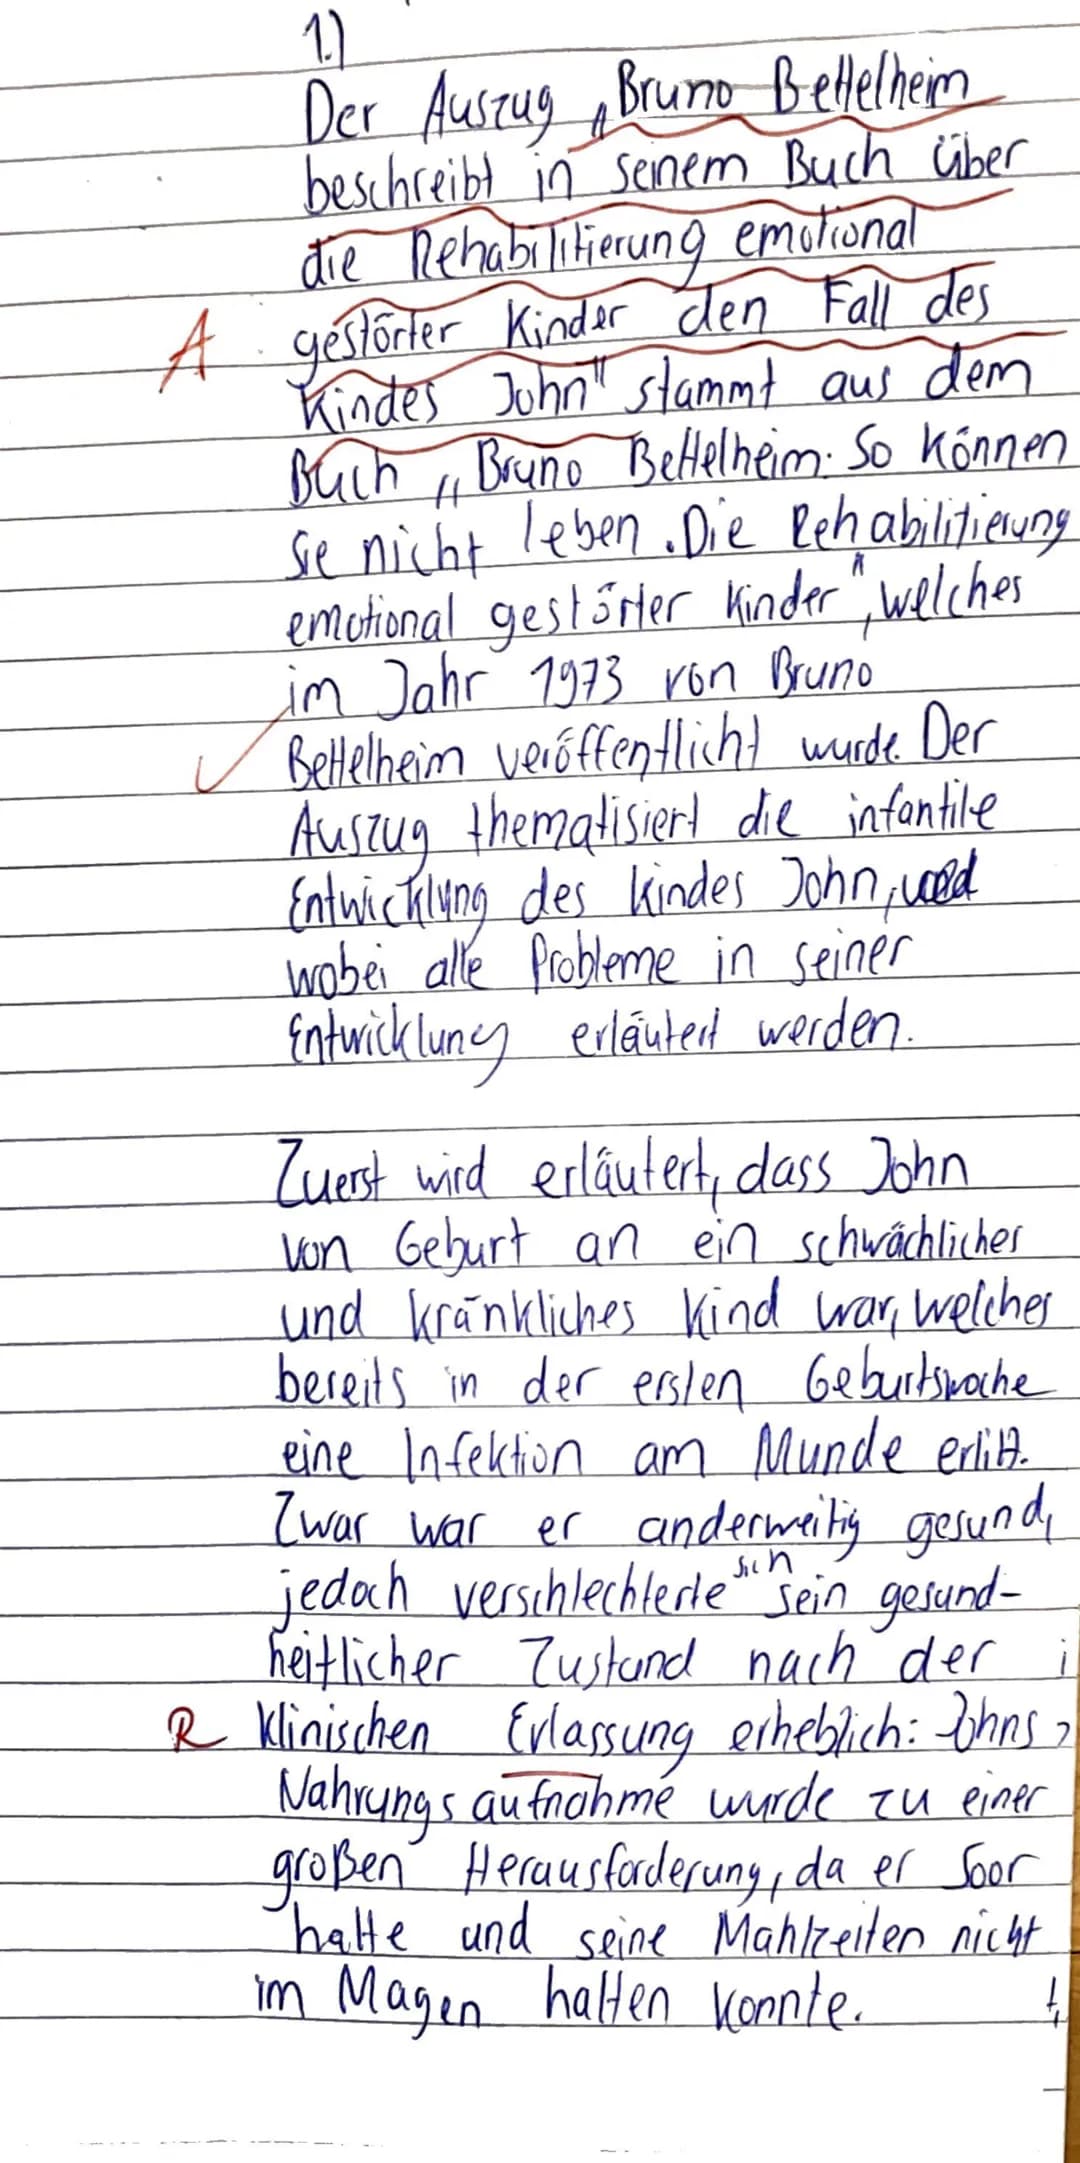 1.)
Der Auszug „Bruno Bettelheim
beschreibt in seinem Buch über
die Rehabilitierung emotional
A gestörter Kinder den Fall des
Kindes John" stammt aus dem
Buch „Bruno Bettelheim. So können
sie nicht leben. Die Rehabilitierung
emotional gestörter Kinder", welches
im Jahr 1973 von Bruno
Bettelheim veröffentlicht wurde. Der
Auszug thematisiert die infantile
Entwicklung des Kindes John,
wobei alle Probleme in seiner
Entwicklung erläutert werden.
Zuerst wird erläutert, dass John
von Geburt an ein schwächliches
und kränkliches Kind war, welches
bereits in der ersten Geburtswoche
eine Infektion am Munde erlitt.
Zwar war er anderweitig gesund,
jedoch verschlechterte sich sein gesund-
heitlicher Zustand nach der
R klinischen Erlassung erheblich: Johns
Nahrungsaufnahme wurde zu einer
großen Herausforderung, da er Soor
hatte und seine Mahlzeiten nicht
im Magen halten konnte.